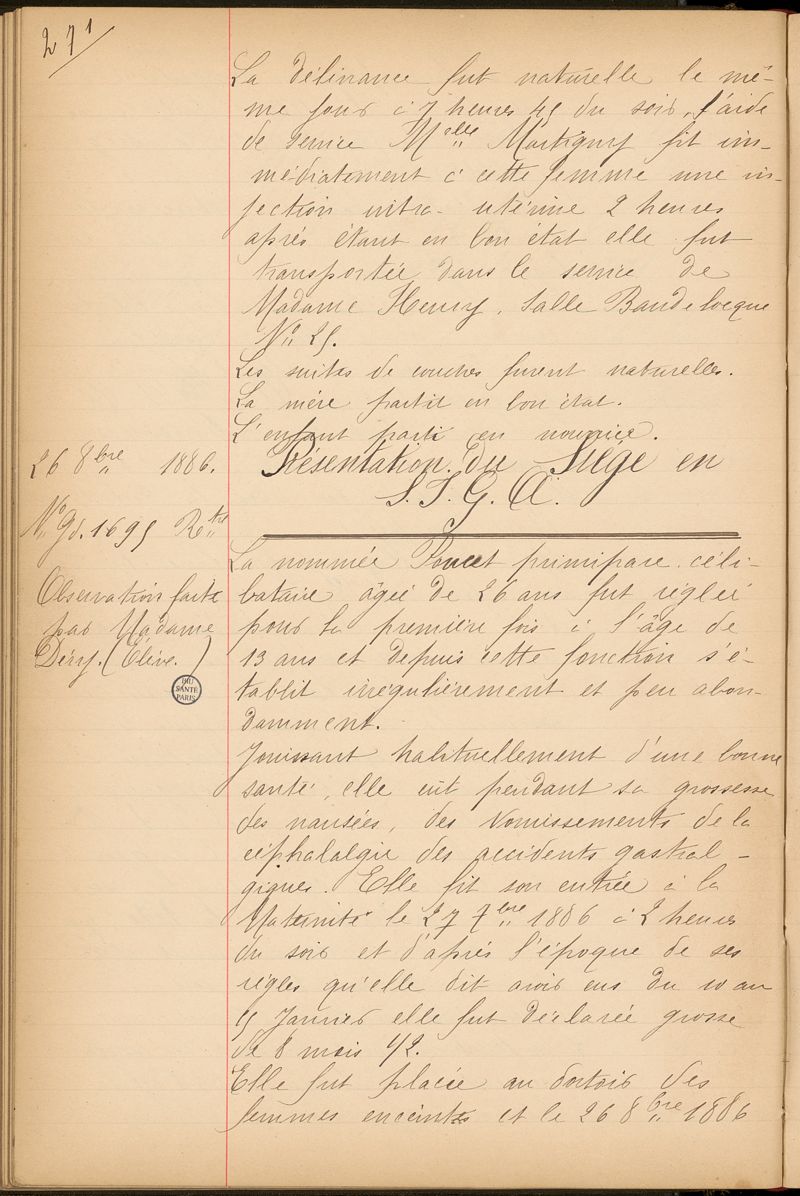 271
La délivrance fut naturelle le mê-
me jour à 7 heures 45 du soir, l'aide
de service M^elle Martigny fit im-
médiatement à cette femme une in-
jection intra-utérine 2 heures
après étant en bon état elle fut
transportée dans le service de
Madame Henry, Salle Baudelocque
N° 25.
Les suites de couches furent naturelles.
La mère partit en bon état.
L'enfant parti en nourrice.
26 8bre 1886.
Présentation du Siège en
S.I.G.A.
N° Gd. 1695
Observation faite
par Madame
Déry. (Elève.)
BIU
SANTE
PARIS
La nommée Poucet primipare céli-
bataire âgée de 26 ans fut réglée
pour la première fois à l'âge de
13 ans et depuis cette fonction s'é-
tablit irrégulièrement et peu abon-
damment.
Jouissant habituellement d'une bonne
santé, elle eut pendant sa grossesse
des nausées, des vomissements de la
céphalalgie des accidents gastral-
giques. Elle fit son entrée à la
Maternité le 27 7bre 1886 à 2 heures
du soir et d'après l'époque de ses
règles qu'elle dit avoir eus du 10 au
15 Janvier elle fut déclarée grosse
de 8 mois 1/2.
Elle fut placée au dortoir des
femmes enceintes et le 26 8bre 1886